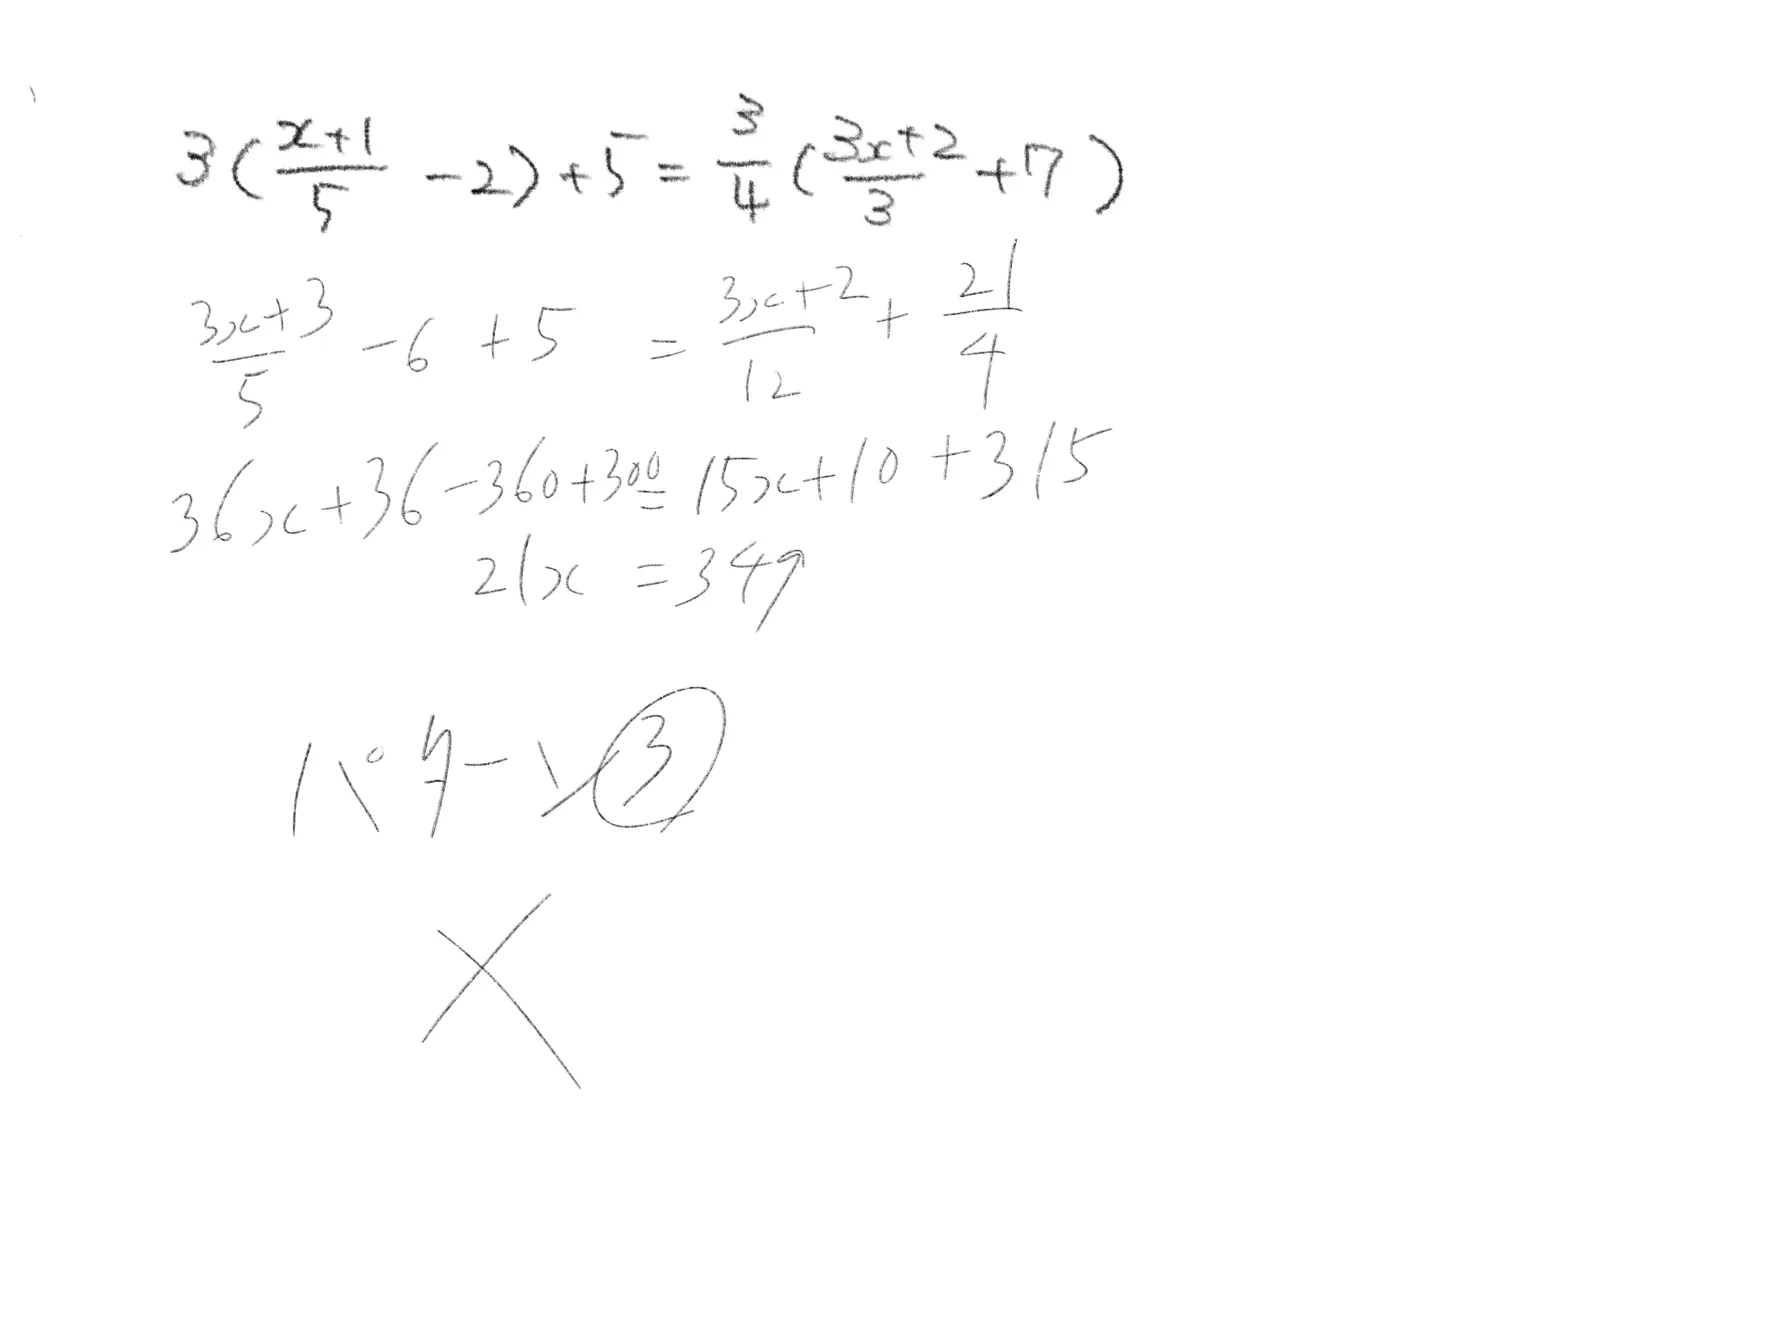 3(\frac{x+1}{5} - 2) + 5 = \frac{3}{4}(\frac{3x+2}{3} + 7)
\frac{3x+3}{5} - 6 + 5 = \frac{3x+2}{12} + \frac{21}{4}
36x + 36 - 360 + 300 = 15x + 10 + 315
21x = 349
パターン③
×